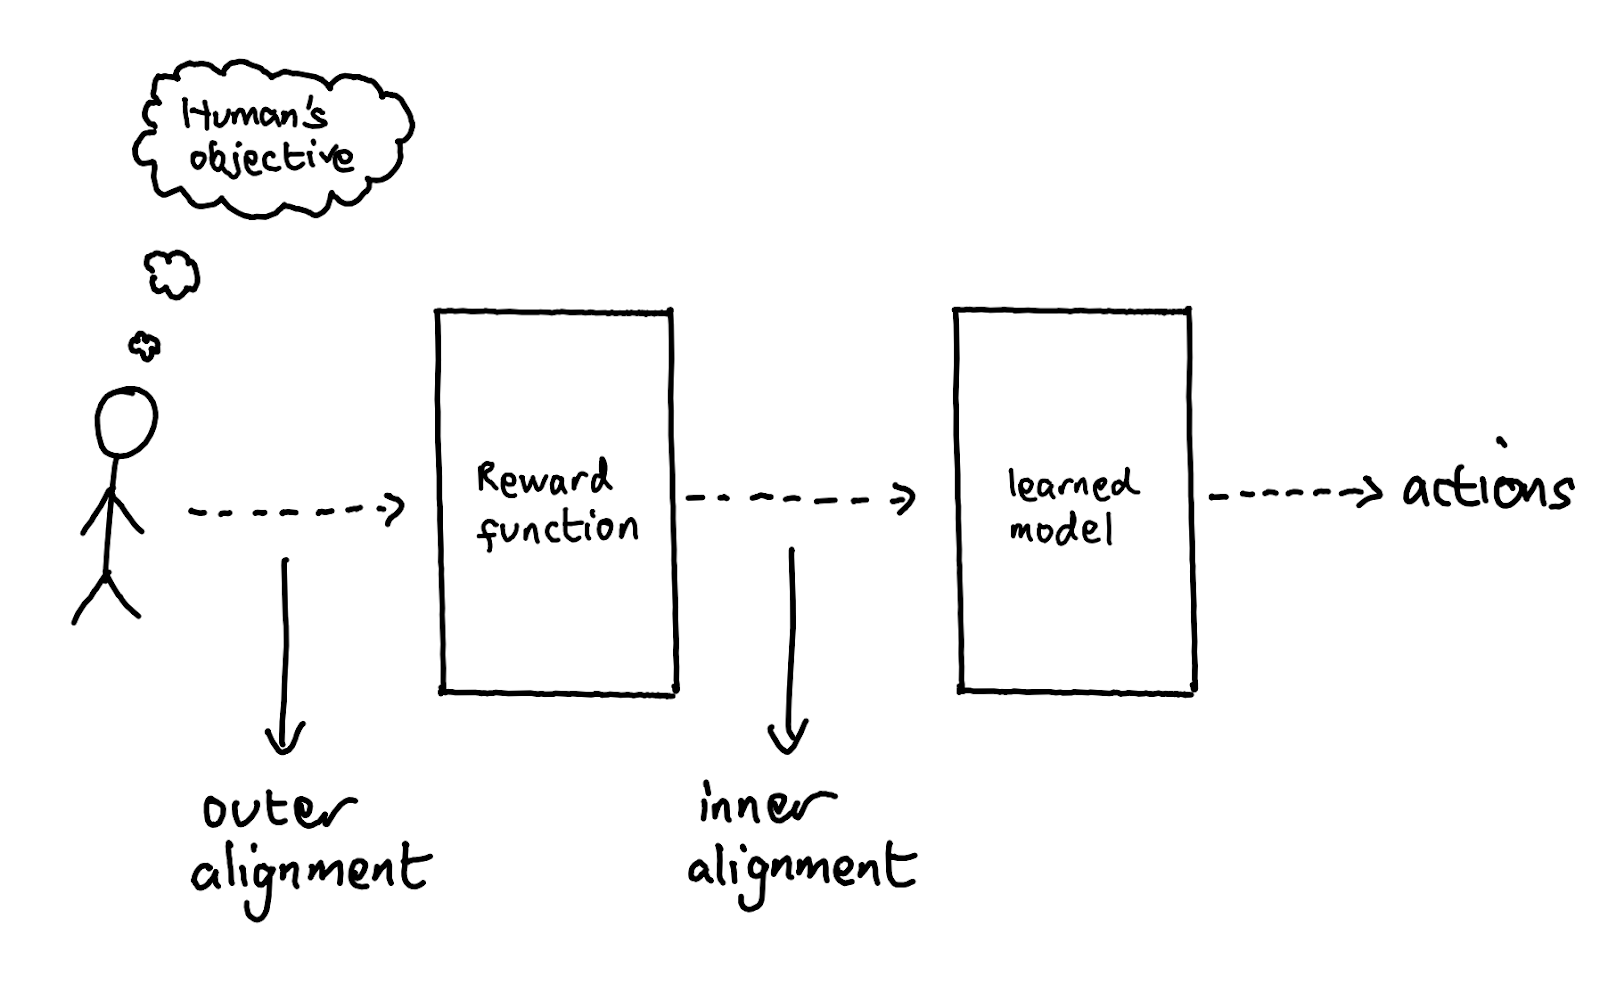 Human's
objective
Reward
function
learned
model
actions
outer
alignment
inner
alignment